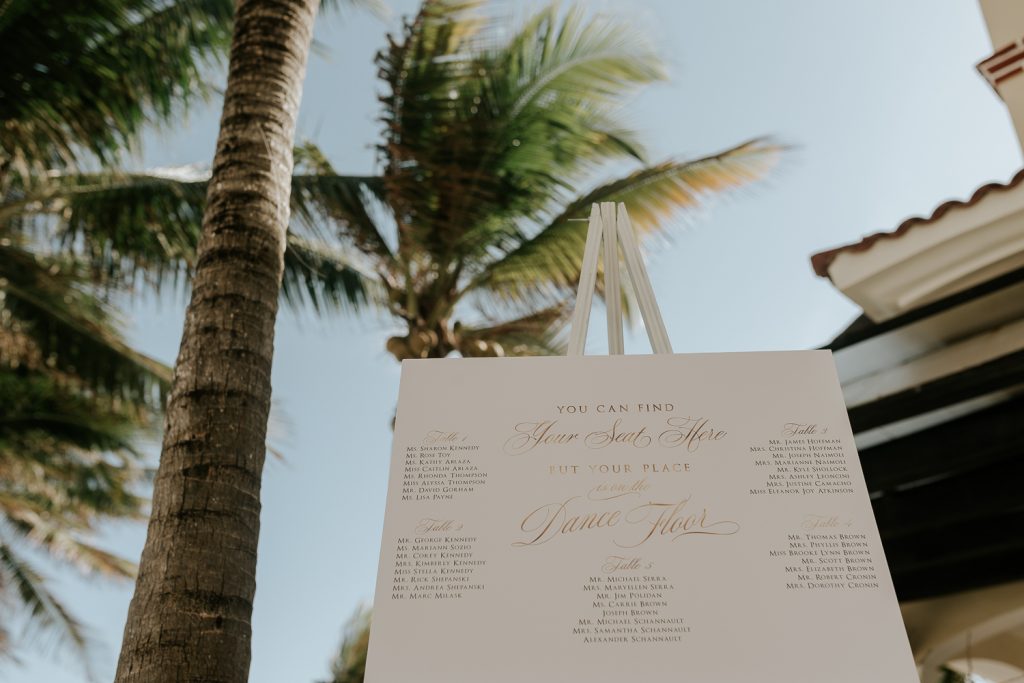 YOU CAN FIND
Your Seat Here
BUT YOUR PLACE
is on the
Dance Floor
Table 1
Ms. Sharon Kennedy
Ms. Rose Toy
Ms. Kathy Ablaza
Miss Caitlin Ablaza
Ms. Rhonda Thompson
Miss Alyssa Thompson
Mr. David Gorham
Ms. Lisa Payne
Table 2
Mr. George Kennedy
Ms. Mariann Sozio
Mr. Corey Kennedy
Mrs. Kimberly Kennedy
Miss Stella Kennedy
Mr. Rick Shepanski
Mrs. Andrea Shepanski
Mr. Marc Milask
Table 5
Mr. Michael Serra
Mrs. Maryellen Serra
Mr. Jim Polidan
Ms. Carrie Brown
Joseph Brown
Mr. Michael Schannault
Mrs. Samantha Schannault
Alexander Schannault
Table 3
Mr. James Hoffman
Mrs. Christina Hoffman
Mr. Joseph Naimoli
Mrs. Marianne Naimoli
Mr. Kyle Shollock
Mrs. Ashley Leoncini
Mrs. Justine Camacho
Miss Eleanor Joy Atkinson
Table 4
Mr. Thomas Brown
Mrs. Phyllis Brown
Miss Brooke Lynn Brown
Mr. Scott Brown
Mrs. Elizabeth Brown
Mr. Robert Cronin
Mrs. Dorothy Cronin